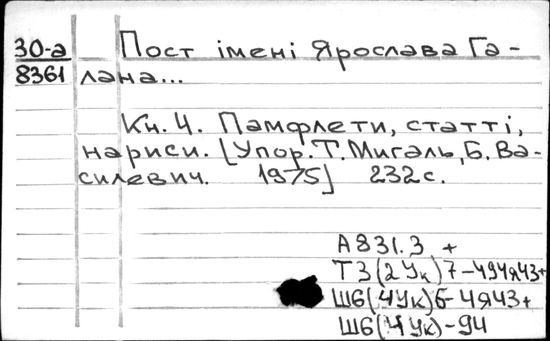 30-а Пост імені Ярослава Га-
8361 лана...
Кн. 4. Памфлети, статті,
нариси. [Упор. Т. Мигаль, Б. Ва-
силевич. 1975] 232 с.
А831.3 +
Т3(2Ук)7-494я43+
Ш6(4Ук)6-4я43+
Ш6(4Ук)-94